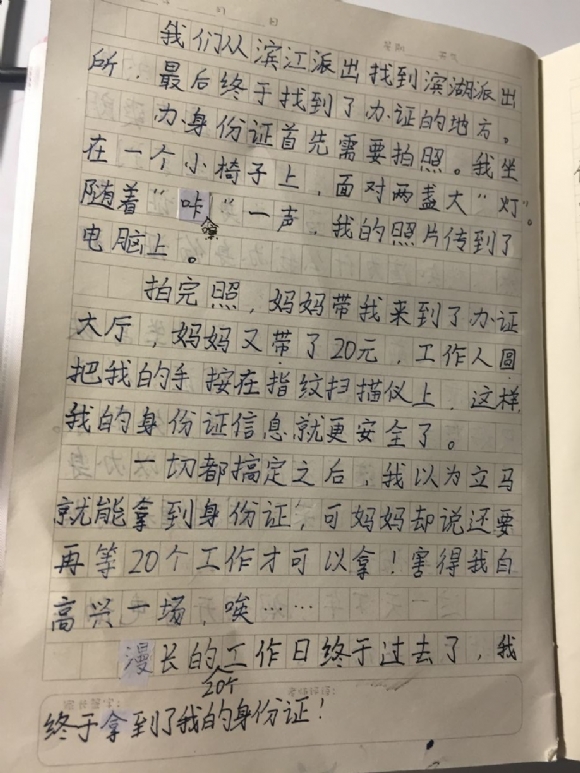 我们从滨江派出找到滨湖派出
所,最后终于找到了办证的地方。
办身份证首先需要拍照。我坐
在一个小椅子上,面对两盏大“灯”。
随着“咔“一声,我的照片传到了
电脑上。
拍完照,妈妈带我来到了办证
大厅,妈妈又带了20元,工作人圆
把我的手按在指纹扫描仪上,这样
我的身份证信息就更安全了。
一切都搞定之后,我以为立马
就能拿到身份证,可妈妈却说还要
再等20个工作才可以拿!害得我白
高兴一场,唉……
漫长的工作日终于过去了,我
20个
终于拿到了我的身份证!